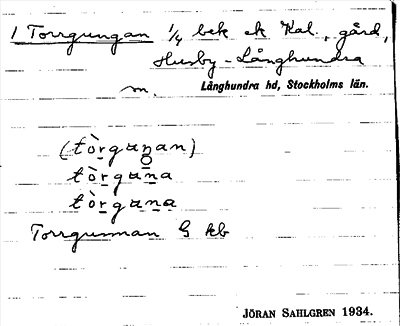 1 Torrgungan 1/4 bek ek Kal., gård,
Husby-Långhundra
m. Långhundra hd, Stockholms län.
(tòrguŋan)
tòrguna
tòrguna
Torrgunnan G kb
JÖRAN SAHLGREN 1934.